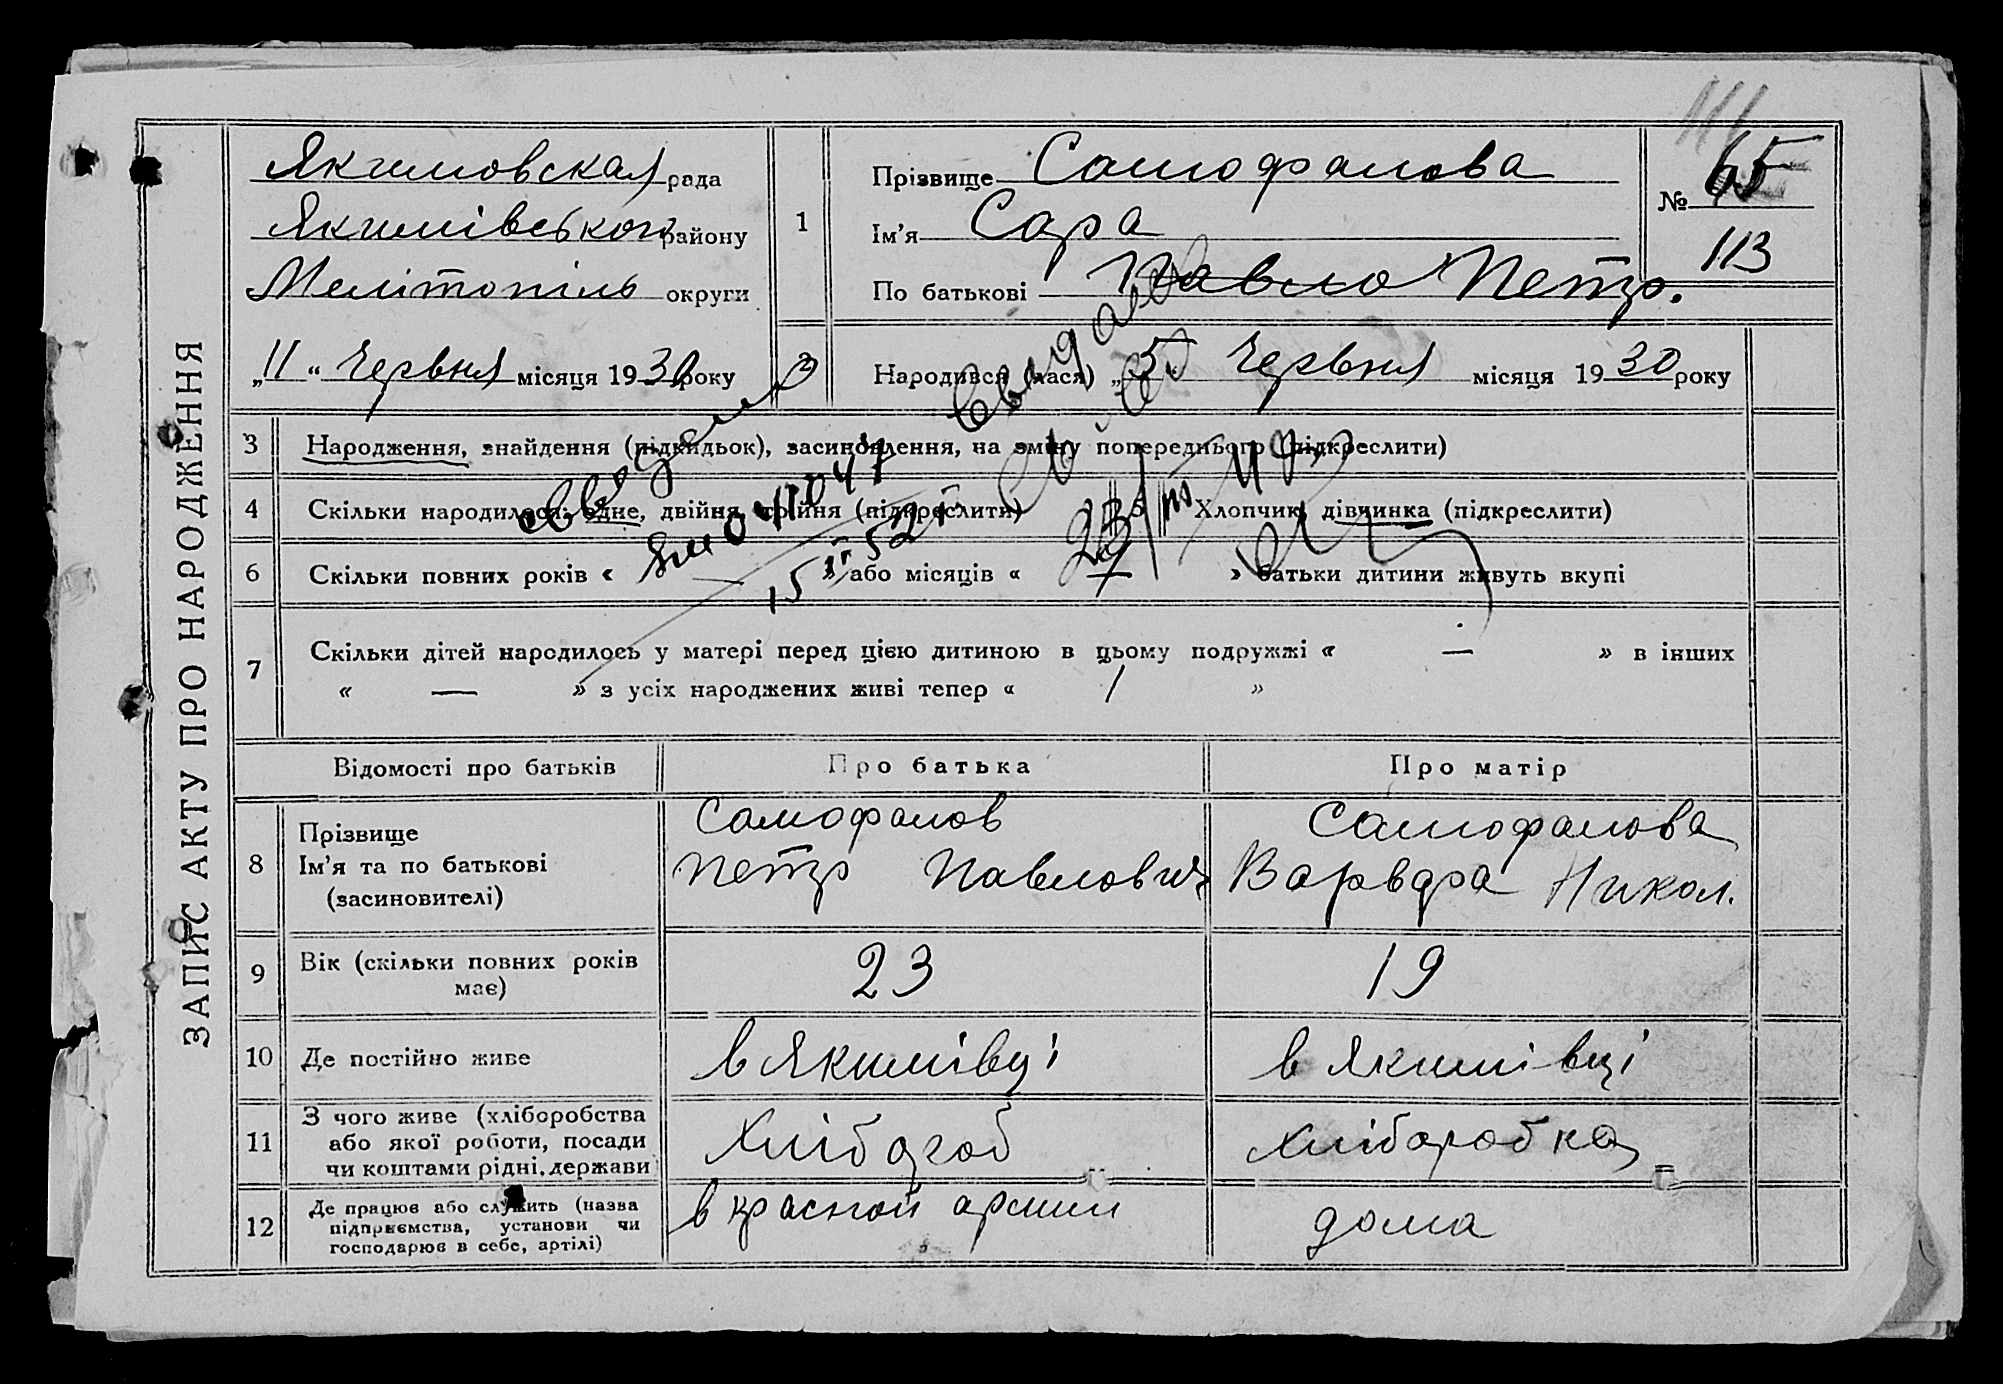 ЗАПИС АКТУ ПРО НАРОДЖЕННЯ
Якимовская рада
Якимівської району
Мелітопіль округи
„11“ Червня місяця 1930 року
1
Прізвище Самофалова
Ім'я Сара
По батькові Павло Петр.
№ 65
113
2
Народився (лася) „5 Червня місяця 1930 року
3 Народження, знайдення (підкидьок), засиновлення, на зміну попереднього (підкреслити)
4 Скільки народилося: одне, двійня, трійня (підкреслити) 5 Хлопчик, дівчинка (підкреслити)
6 Скільки повних років « — » або місяців « » батьки дитини живуть вкупі
7 Скільки дітей народилось у матері перед цією дитиною в цьому подружжі « — » в інших
« — » з усіх народжених живі тепер « 1 »
041047
15 III 52 г.
Відомості про батьків Про батька Про матір
8 Прізвище
Ім'я та по батькові
(засиновителі)
Самофалов
Петр Павлович
Самофалова
Варвара Никол.
9 Вік (скільки повних років
має)
23 19
10 Де постійно живе в Якимівці в Якимівці
11 З чого живе (хліборобства
або якої роботи, посади
чи коштами рідні, держави
Хлібороб Хліборобка
12 Де працює або служить (назва
підприємства, установи чи
господарює в себе, артілі)
в красной армии дома